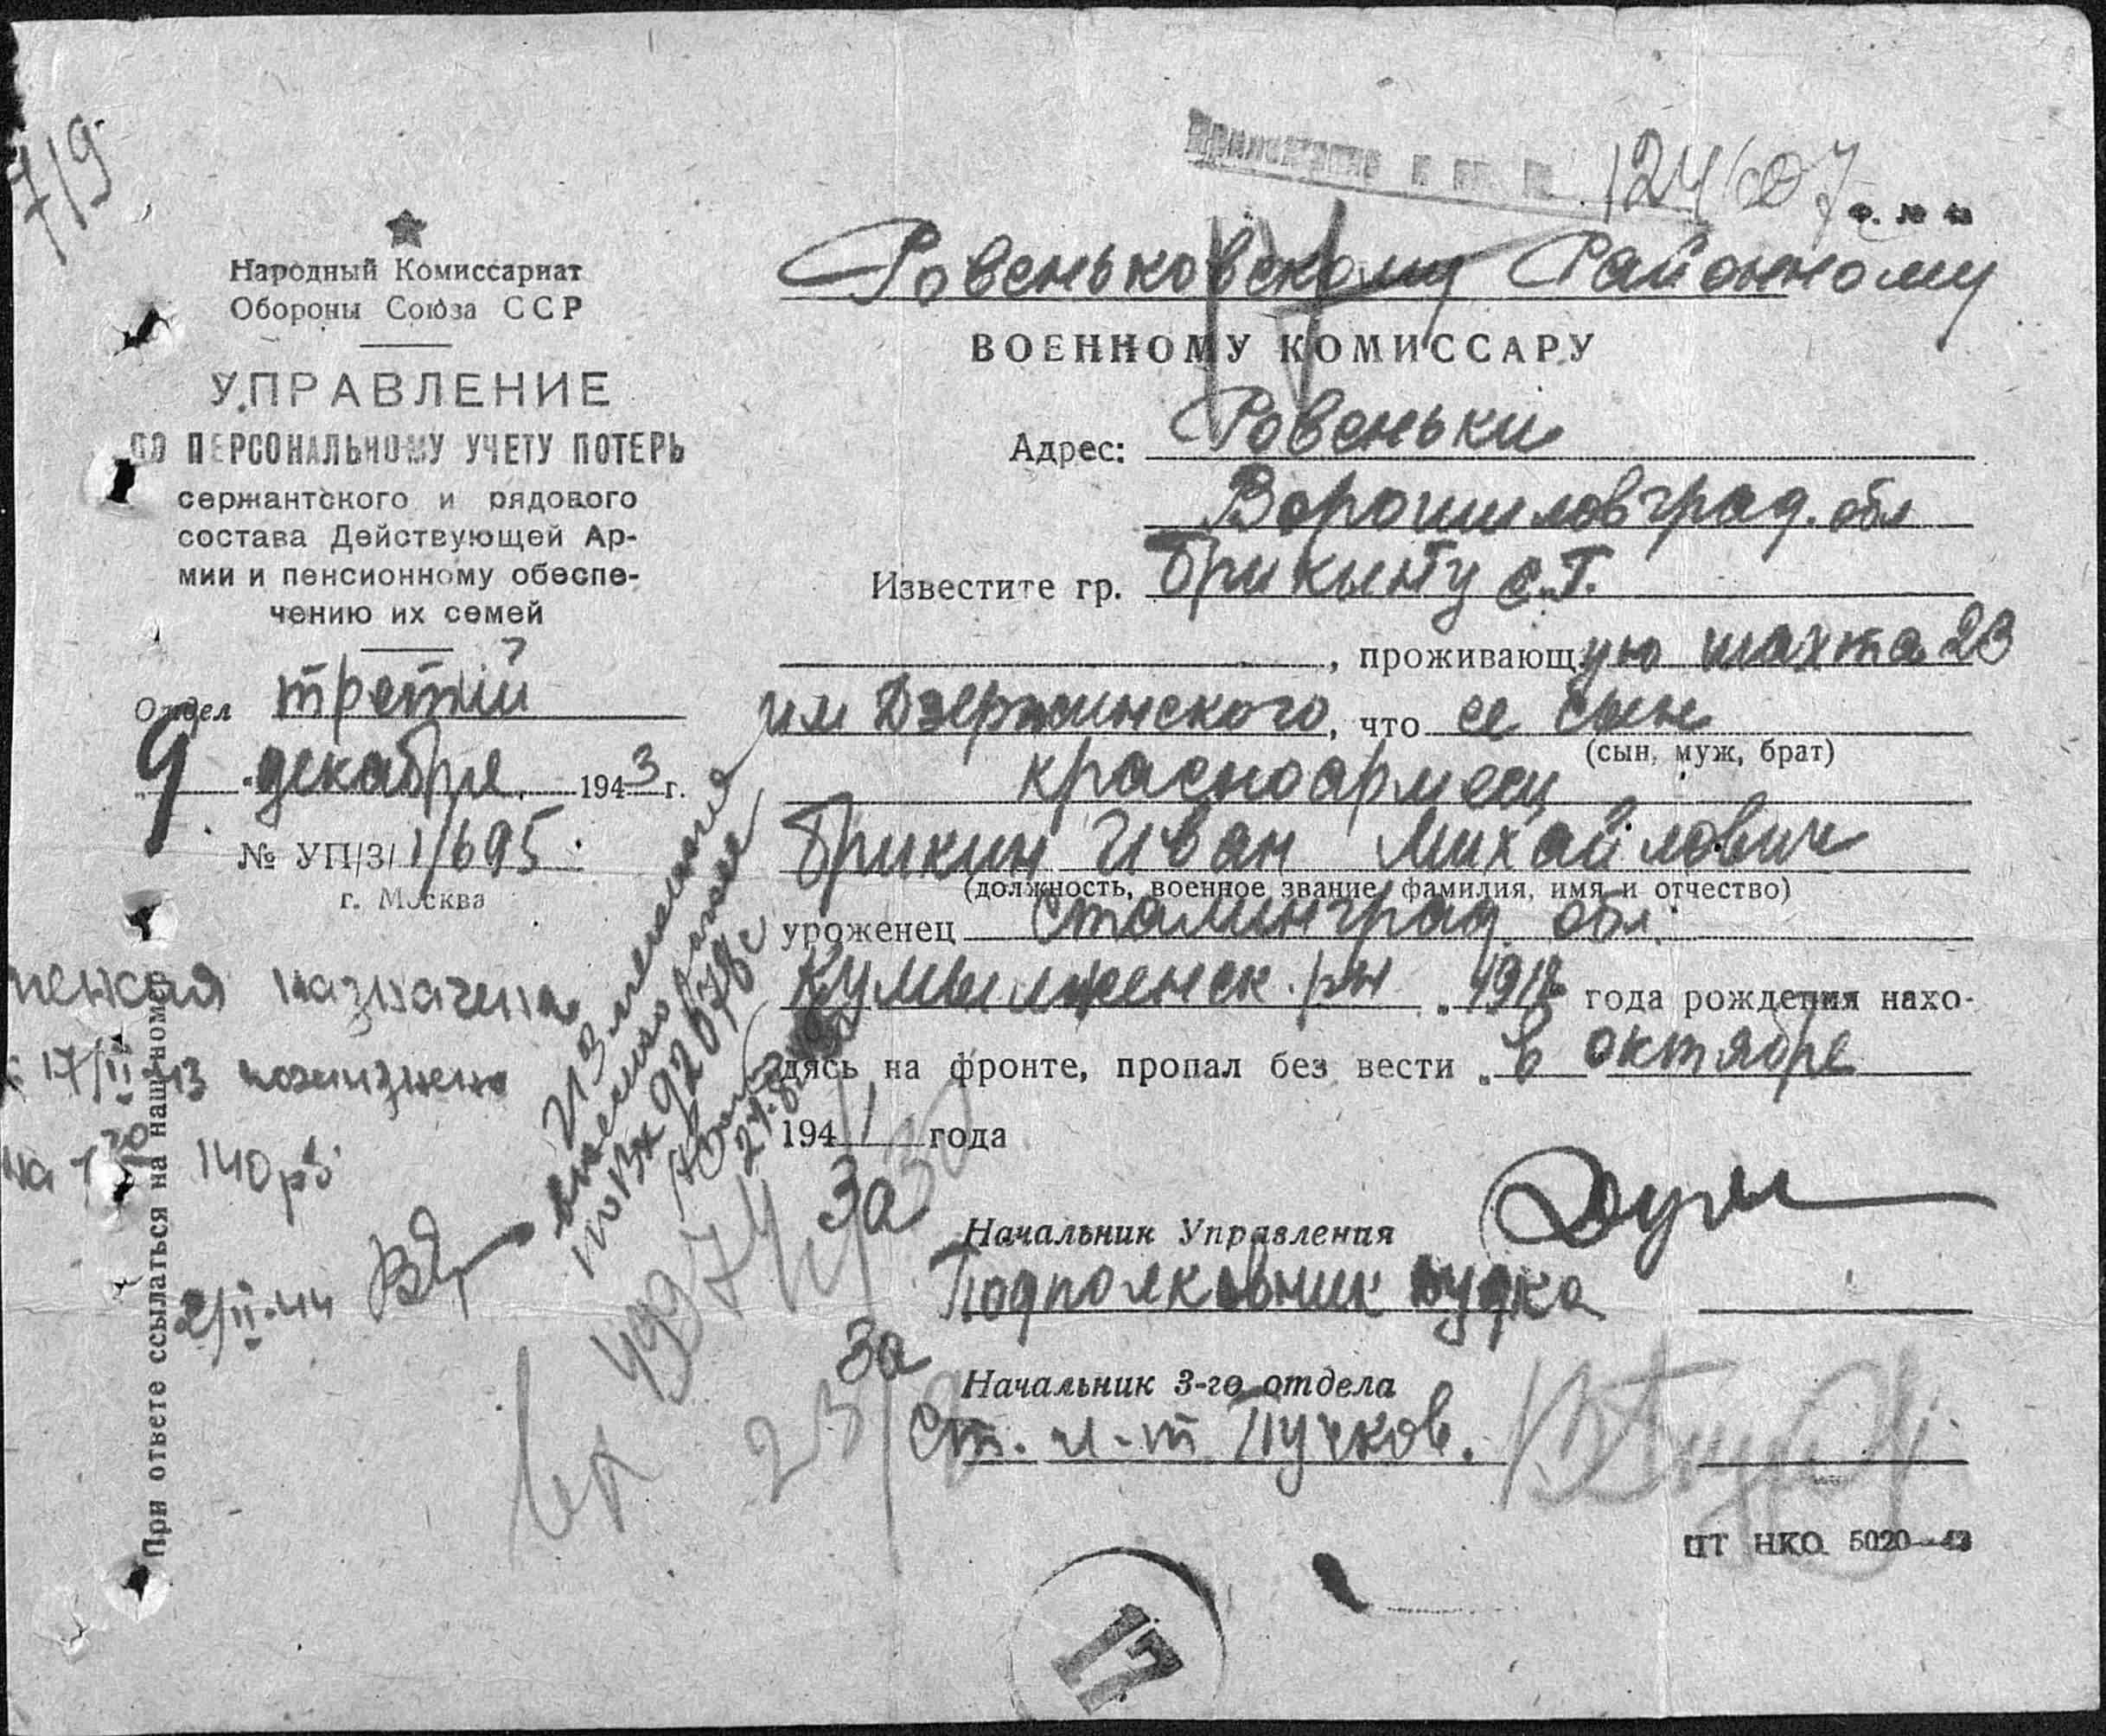 7/9
приложение к вх. №
124607
ф. № 4а
Народный Комиссариат
Обороны Союза ССР
УПРАВЛЕНИЕ
ПО ПЕРСОНАЛЬНОМУ УЧЕТУ ПОТЕРЬ
сержантского и рядового
состава Действующей Ар-
мии и пенсионному обеспе-
чению их семей
Отдел третий
9 декабря 1943 г.
№ УП/3/1/695
г. Москва
Ровеньковскому Районному
ВОЕННОМУ КОМИССАРУ
Адрес: Ровеньки
Ворошиловград. обл
Известите гр.
, проживающую шахта 23
им Дзержинского, что ее сын
(сын, муж, брат)
красноармеец
Брикин Иван Михайлович
(должность, военное звание, фамилия, имя и отчество)
уроженец Сталинград. обл.
Кумылженск. рн 1912 года рождения нахо-
дясь на фронте, пропал без вести в октябре
1941 года
Начальник Управления
Подполковник
Начальник 3-го отдела
Ст. л-т Пучков.
ПТ НКО 5020—43
пенсия назначена
17/II-43 пожизненно
на 140 рб
2/II-44
Изменения
внесено
по Вх 92678с
За
49974
За
вх
23/
При ответе ссылаться на наш номер
17